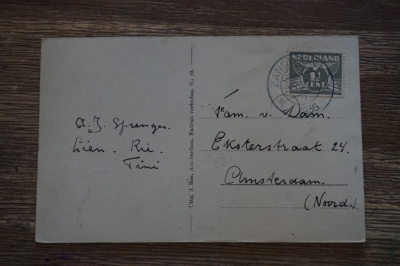 A. J. Sprenger.
Lien. Rie.
Tini
Uitg. J. Sleding, Amsterdam. Nadruk verboden. No. 89.
NEDERLAND
1½
CENT
Fam. v. Dam.
Eksterstraat 24.
Amsterdam.
(Noord.)